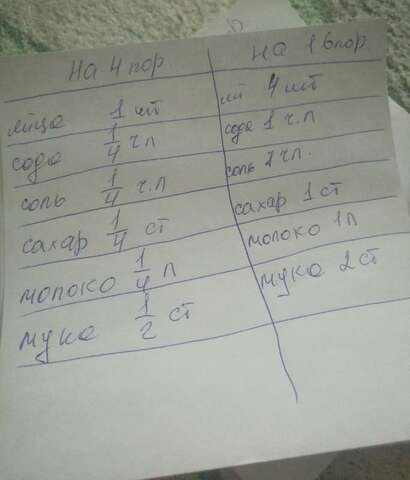 на 4 пор. на 16 пор.
яйцо 1 шт яй 4 шт
сода 1/4 ч л сода 1 ч.л
соль 1/4 ч.л соль 1 ч л.
сахар 1/4 ст сахар 1 ст
молоко 1/4 л молоко 1 л
мука 1/2 ст мука 2 ст